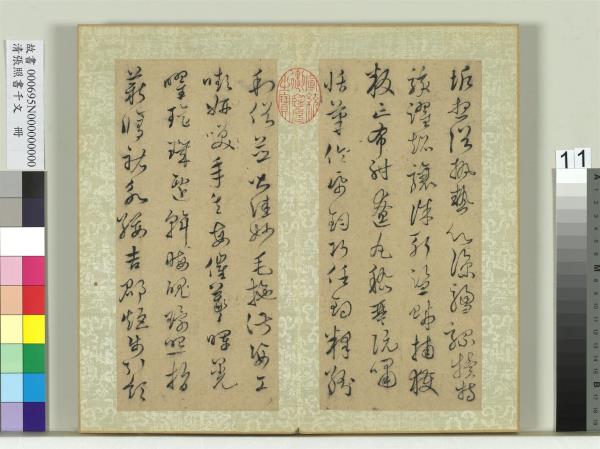 故書 000695N000000000
清張照書千文 冊
垢想浴執熱願涼驢騾犢特
駭躍超驤誅斬盜賊捕獲
叛亡布射遼丸嵇琴阮嘯
恬筆倫紙鈞巧任釣釋紛
利俗並皆佳妙毛施淑姿工
顰妍笑年矢每催羲暉朗
曜璇璣懸斡晦魄環照指
薪修祜永綏吉劭矩步引領
11